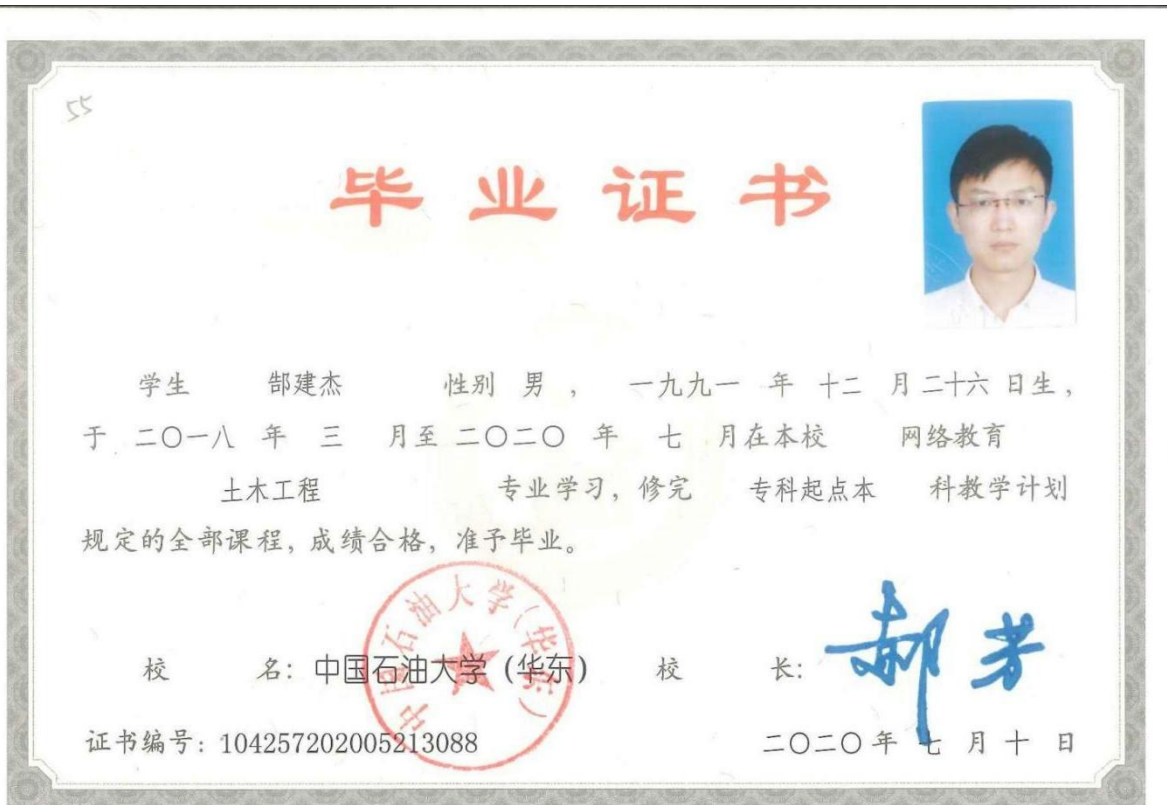 55
毕业证书
学生 郜建杰 性别 男 , 一九九一 年 十二 月 二十六 日生,
于 二〇一八 年 三 月至 二〇二〇 年 七 月在本校 网络教育
土木工程 专业学习, 修完 专科起点本 科教学计划
规定的全部课程, 成绩合格, 准予毕业。
中国石油大学(华东)
校 名: 中国石油大学 (华东) 校 长: 郝芳
证书编号: 104257202005213088 二〇二〇 年 七 月 十 日